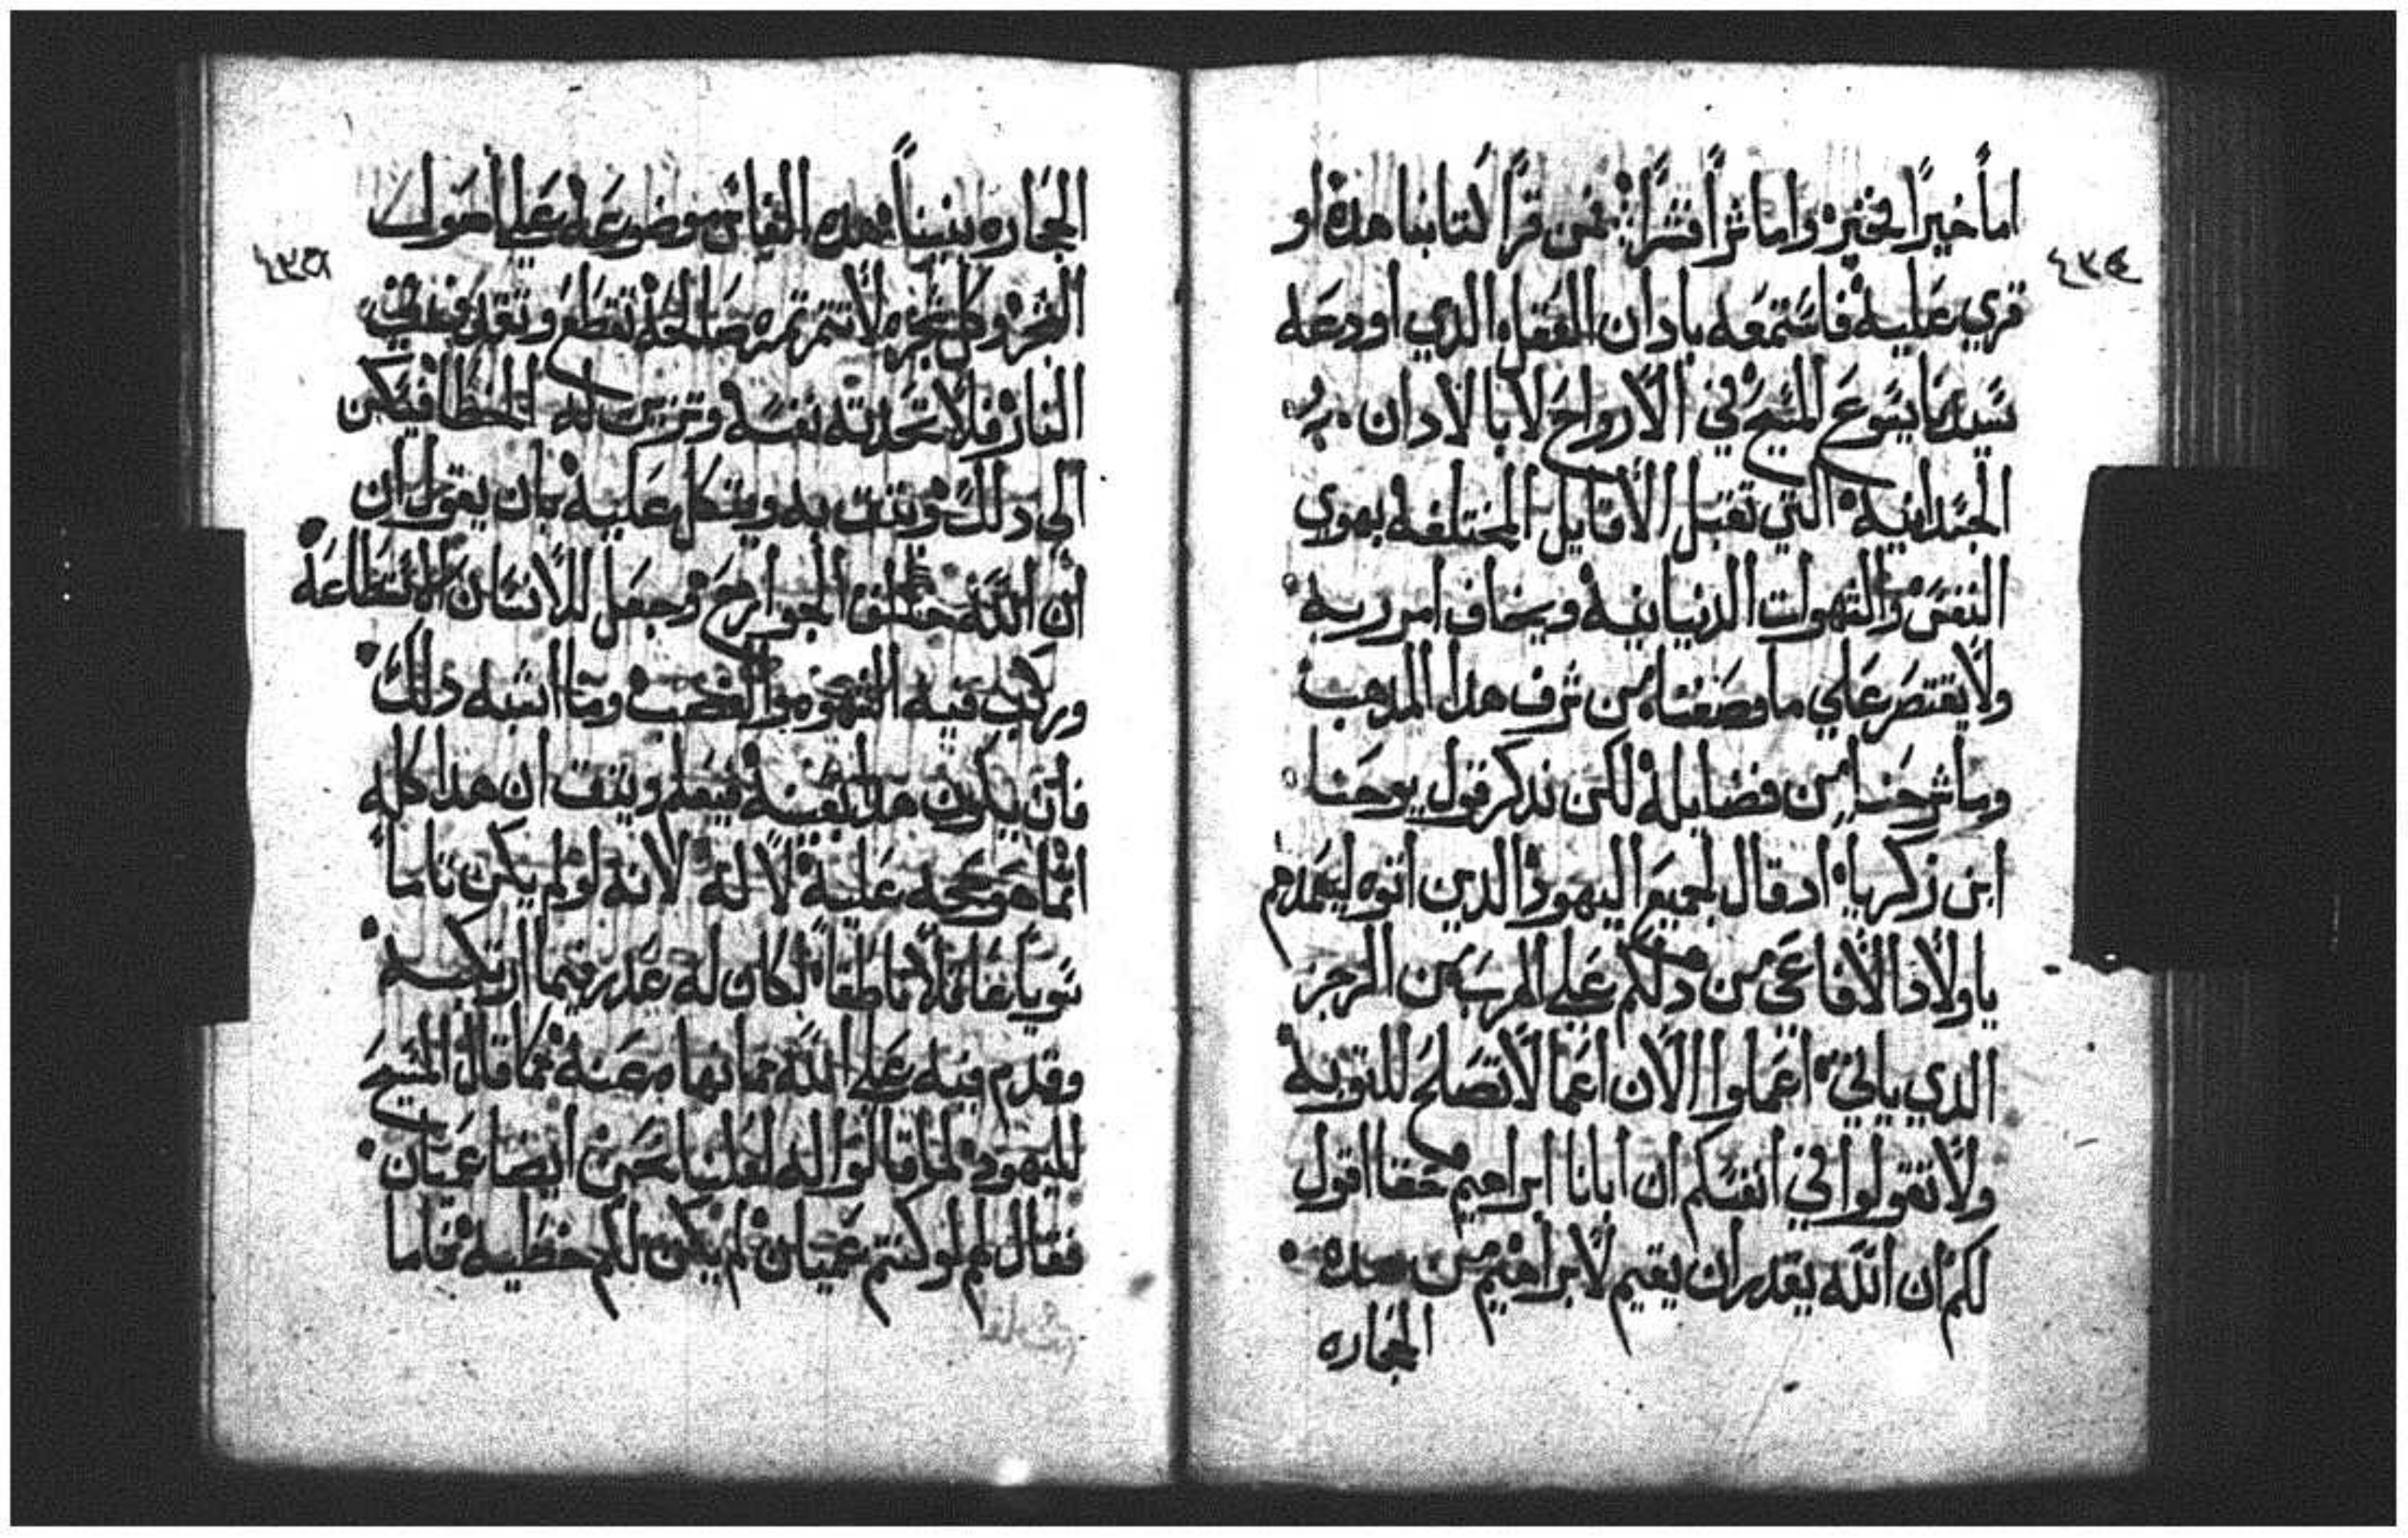 ٤٣٤
اما خيرًا فخيره واما شرًا فشرًا: فمن قرا كتابنا هذه او
قري عليه فاستمعه بادان العقل الذي اودعه
سيدنا يسوع المسيح في الارواح لا بالادان
الجسدانيه التي تقبل الاقايل المختلفه بهوي
النفس والشهوات الدنيانيه ويخاف امر ربه
ولا يقتصر علي ما وصفناه من شرف هدا المدهب
وما شرحنا من فضايله لكن ندكر قول يوحنا
ابن زكريا اد قال لجميع اليهود الدين اتوه ليعمدهم
ياولاد الافاعي من دلكم علي الهرب من الرجز
الدي ياتي اعملوا الان اعمالا تصلح للتوبه
ولا تقولوا في انفسكم ان ابانا ابراهيم حقا اقول
لكم ان الله يقدر ان يقيم لابراهيم من هده
الحجاره
٤٣٥
الحجاره بنينًا هده الفاس موضوعه علي اصول
الشجر وكل شجره لا تثمر ثمره صالحه تقطع وتقد في
النار فلا تحدثه نفسه وتزين له الخطا فيكن
الي دلك ويثق به ويتكل عليه بان يقول ان
ان الله خلق الجوارح وجعل للانسان الاستطاعه
وركب فيه الشهوه والغضب وما اشبه دلك
فان يكون هدا بعينه فيعلم ويثق ان هدا كله
انما هو حجه عليه لا له لانه لو لم يكن تاما
سويا عاقلا ناطقا لكان له عدر فيما ارتكبه
وقدم فيه علي الله مما نهاه عنه كما قال المسيح
لليهود لما قالوا له لعلنا نحن ايضا عميان
فقال لهم لو كنتم عميان لم يكن لكم خطيه فاما